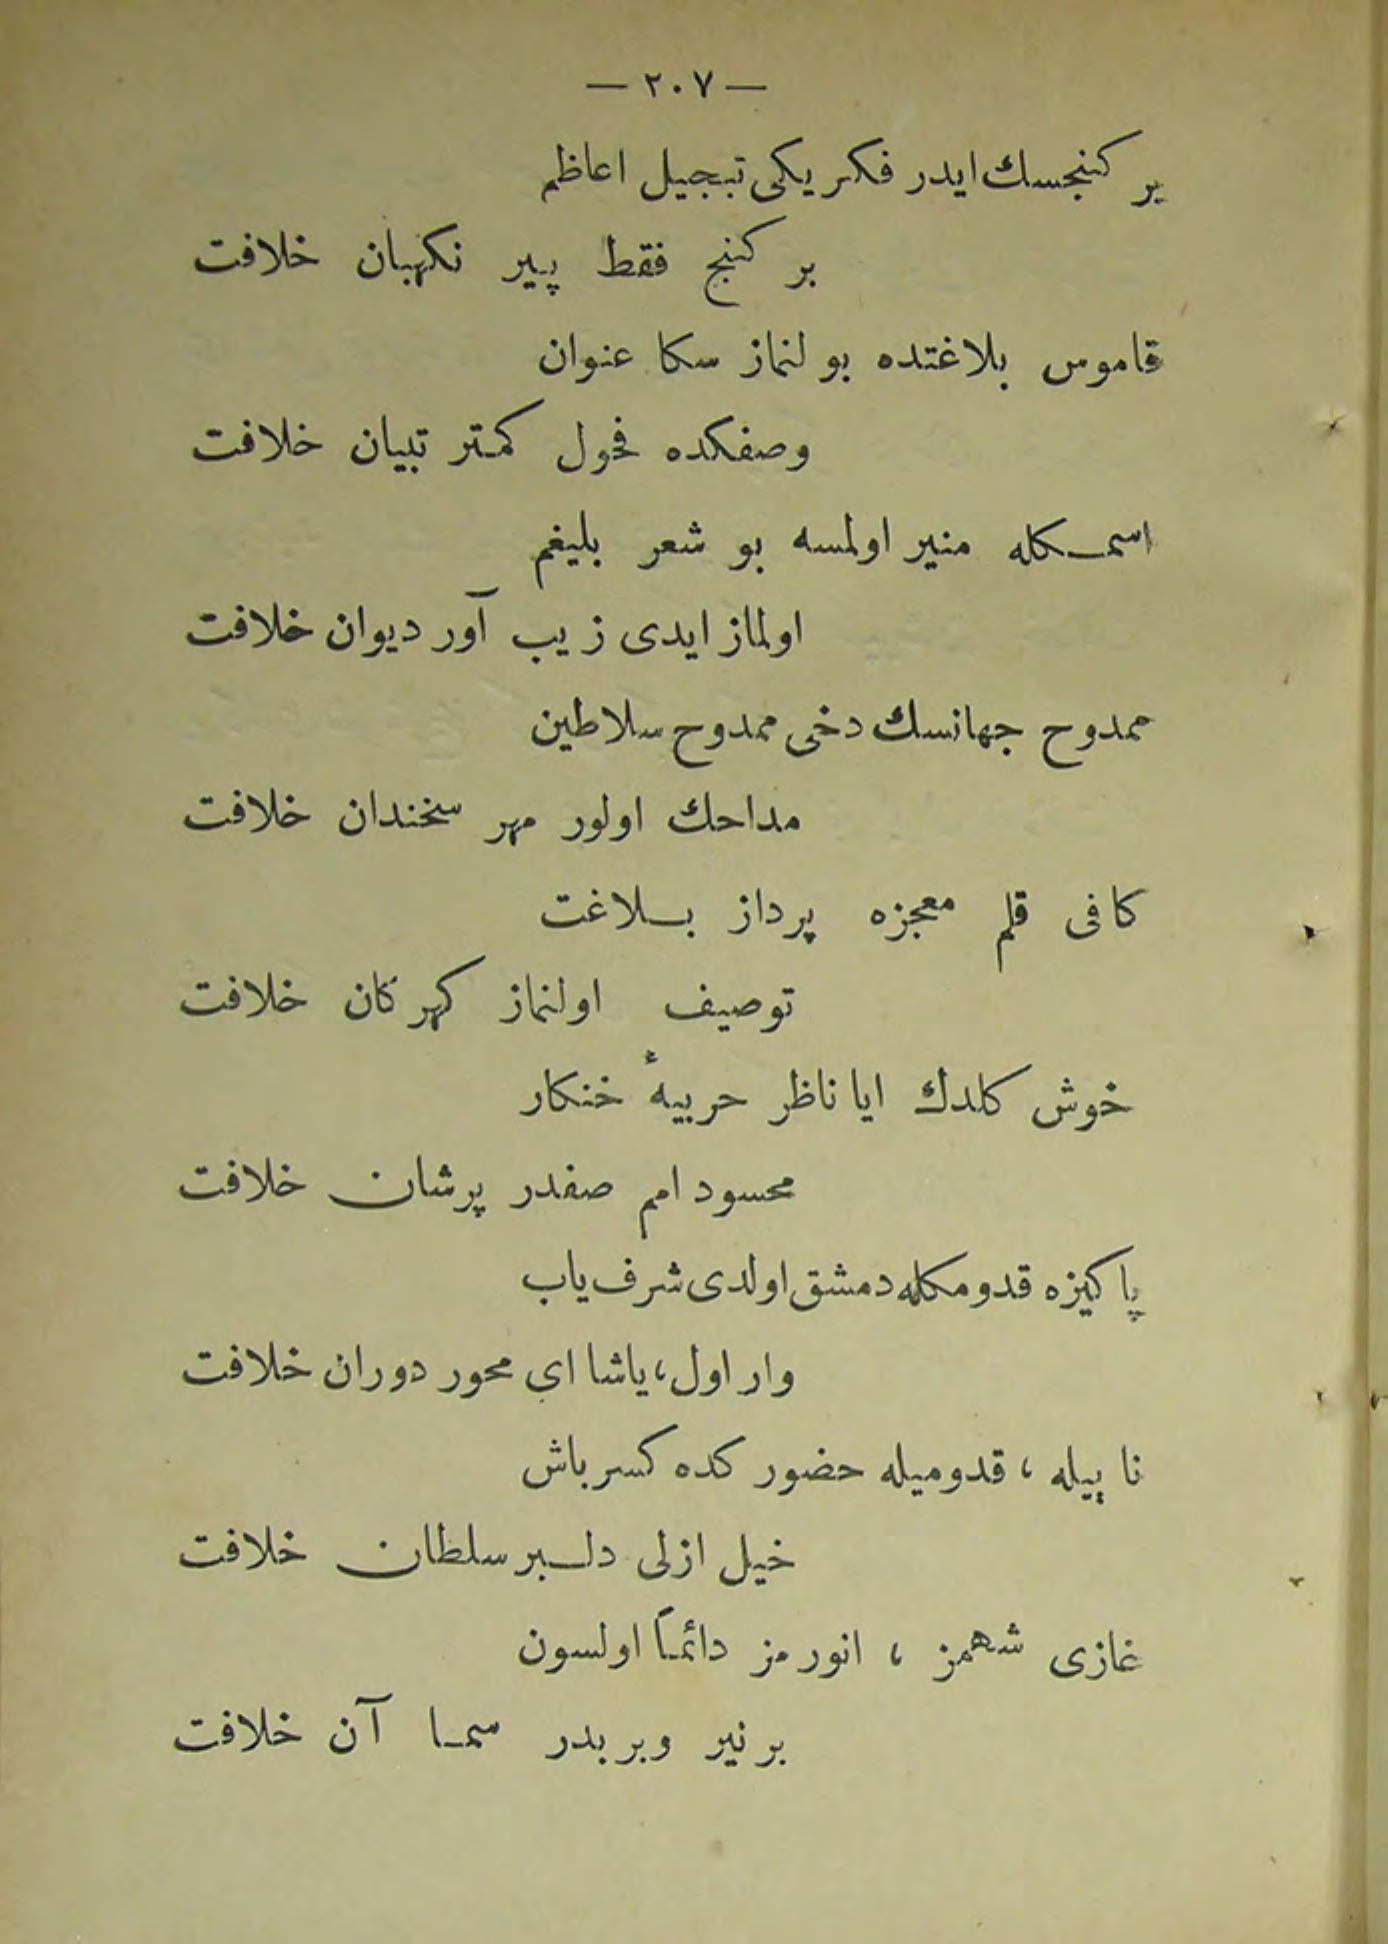 — ٢٠٧ —
بر كنجسك ايدر فكريكى تبجيل اعاظم
بر كنج فقط پير نكهبان خلافت
قاموس بلاغتده بولنماز سكا عنوان
وصفكده فحول كمتر تبيان خلافت
اسمكله منير اولمسه بو شعر بليغم
اولماز ايدى زيب آور ديوان خلافت
ممدوح جهانسك دخى ممدوح سلاطين
مداحك اولور مهر سخندان خلافت
كافى قلم معجزه پرداز بلاغت
توصيف اولنماز كهركان خلافت
خوش كلدك ايا ناظر حربيهٔ خنكار
محسود امم صفدر پرشان خلافت
پاكيزه قدومكله دمشق اولدى شرف ياب
وار اول، ياشا اى محور دوران خلافت
نا پيله ، قدوميله حضور كده كسر باش
خيل ازلى دلبر سلطان خلافت
غازى شهمز ، انورمز دائماً اولسون
بر نير وبر بدر سما آن خلافت